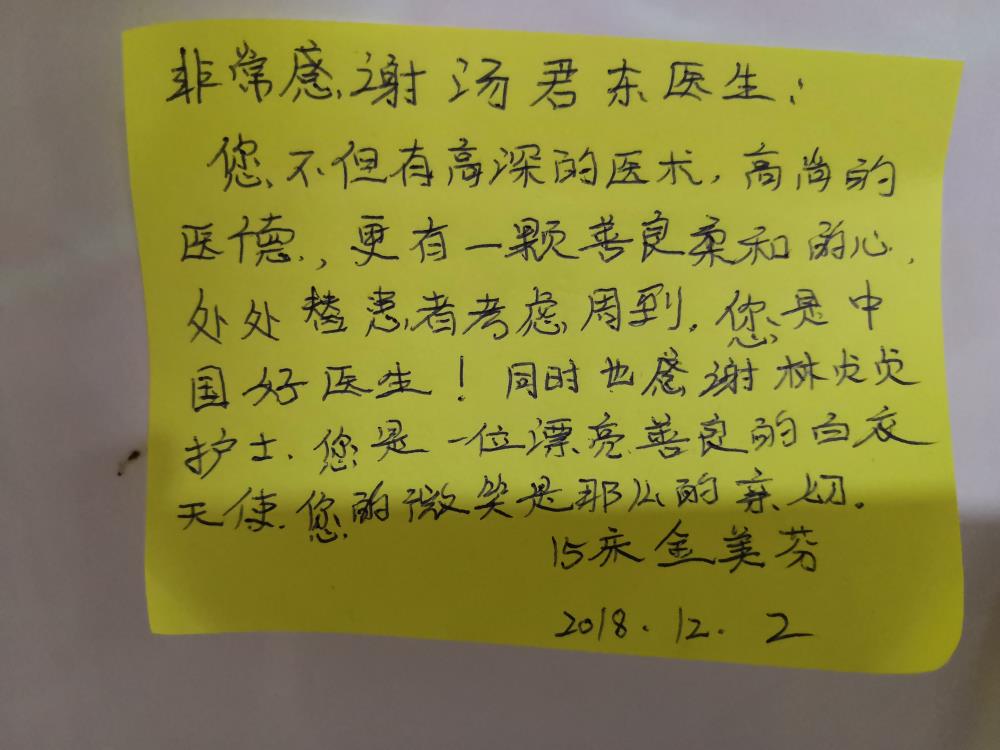 非常感谢汤君东医生：
您不但有高深的医术，高尚的
医德，更有一颗善良柔和的心，
处处替患者考虑周到，您是中
国好医生！同时也感谢林贞贞
护士.您是一位漂亮善良的白衣
天使.您的微笑是那么的亲切。
15床金美芬
2018.12.2